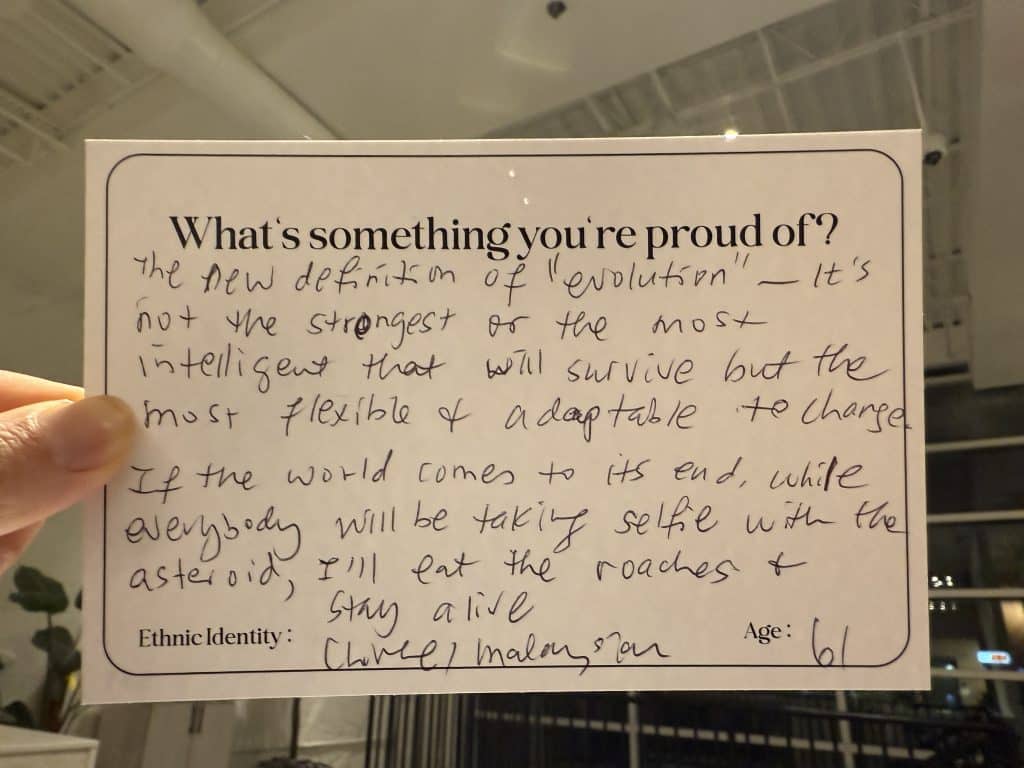 What's something you're proud of?
The new definition of "evolution" — It's
not the strongest or the most
intelligent that will survive but the
most flexible & adaptable to change.
If the world comes to its end, while
everybody will be taking selfie with the
asteroid, I'll eat the roaches &
stay alive
Ethnic Identity: Chinese, malaysian
Age: 61